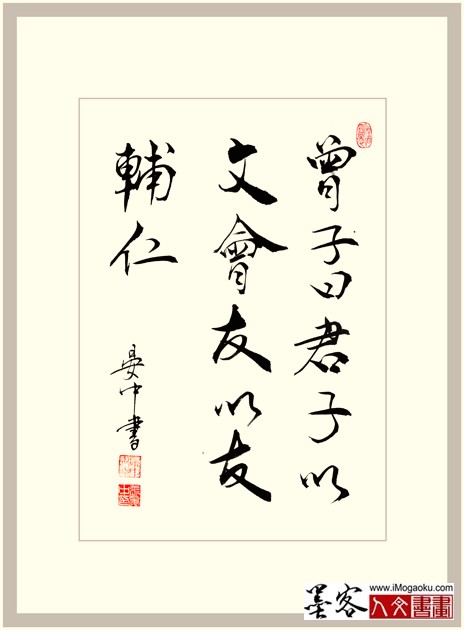 曾子曰君子以
文會友以友
輔仁
晏中書
www.iMogaoku.com
墨客
人文書畫